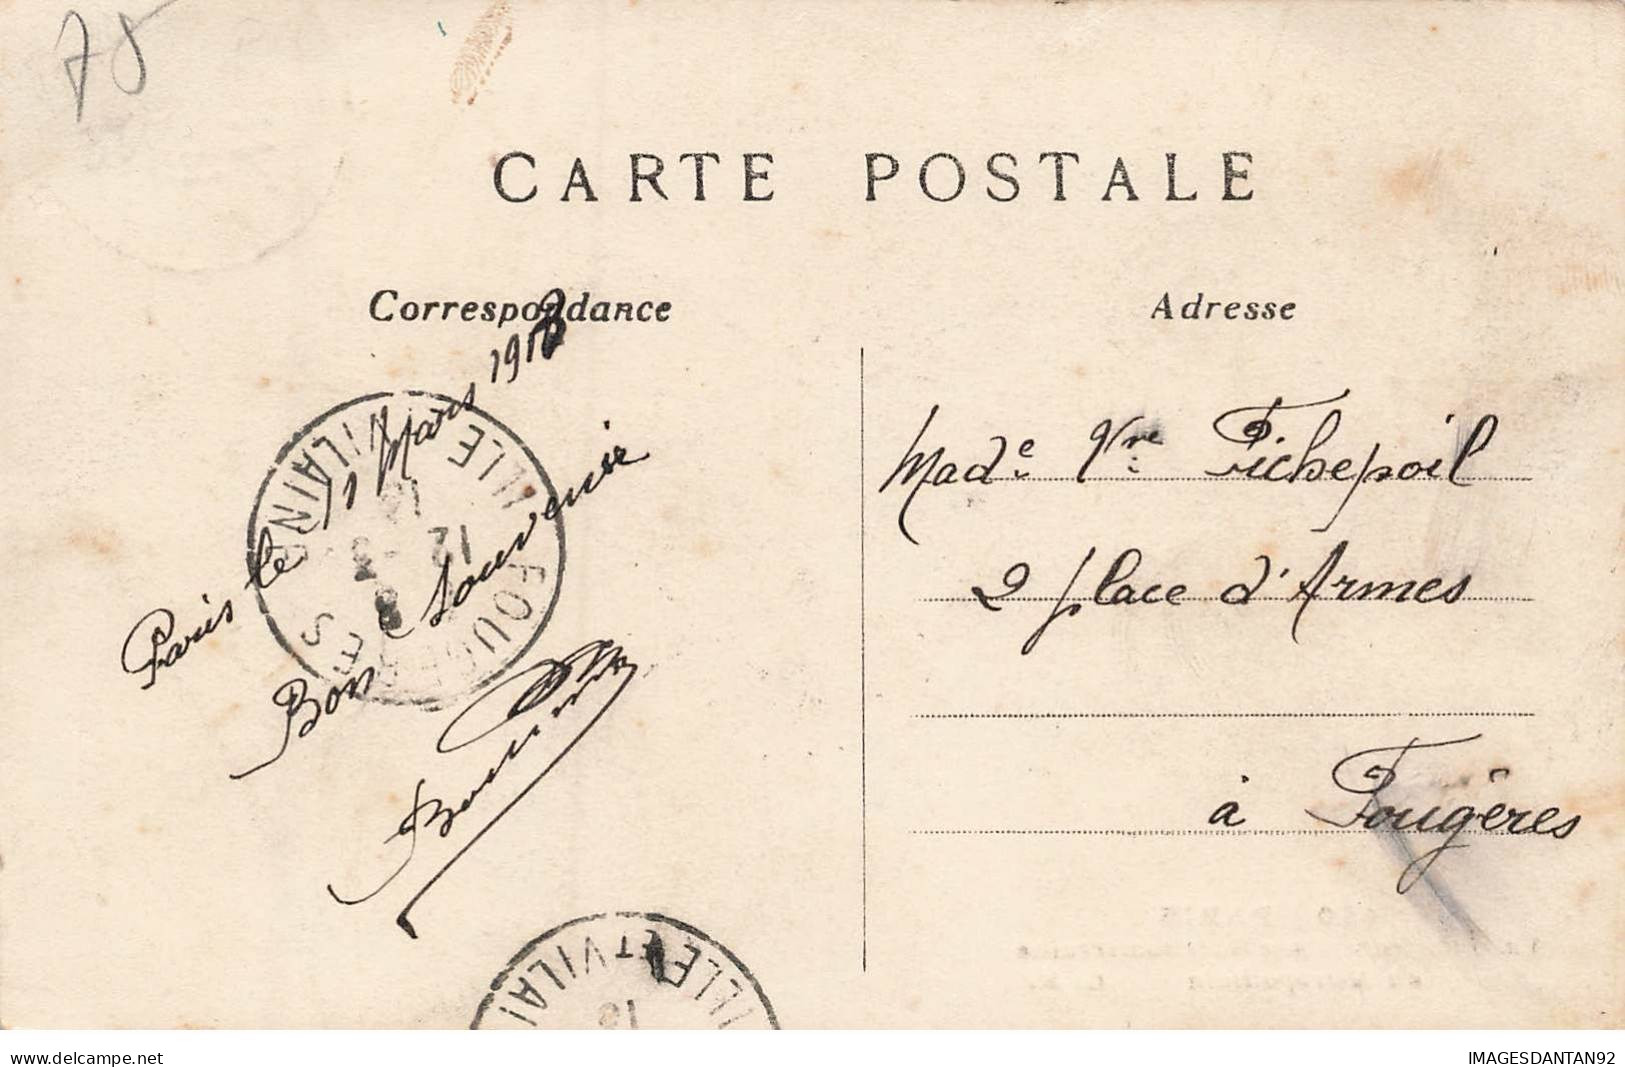 75
CARTE POSTALE
Correspondance
Adresse
Paris le 11 Mars 1908
Bon Souvenir
Made Vve Fichepoil
2 place d'Armes
à Fougères
FOUGERES
ILLE ET VILAINE
12 -3
ILLE ET VILAI
delcampe.net
IMAGESDANTAN92